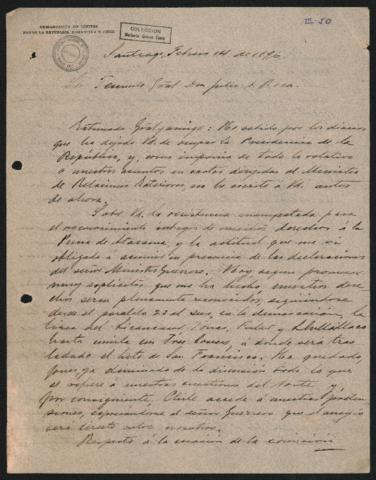 III-50
DEMARCACIÓN DE LÍMITES
ENTRE LA REPÚBLICA ARGENTINA Y CHILE
COLECCION
Santiago, Febrero 14 de 1896
Sr Teniente Gral Don Julio A. Roca.
Estimado Gral y amigo: He sabido por los diarios
que ha dejado Vd. de ocupar la Presidencia de la
República, y, como imponia de todo lo relativo
a nuestros asuntos en cartas dirigidas al Ministro
de Relaciones Exteriores, no he escrito á Vd. antes
de ahora.
Sabe Vd. la resistencia encontrada para
el reconocimiento integro de nuestros derechos á la
Puna de Atacama y la actitud que me vi
obligado á asumir en presencia de las declaraciones
del señor Ministro Guerrero. Hoy, segun promesas
muy explicitas que me ha hecho, nuestros dere-
chos seran plenamente reconocidos, siguiendose
desde el paralelo 23 al sur, en la demarcación, la
linea del Licancaur, Tonar, Pular y Llullaillaco
hasta unirla con Tres Cruces, á donde será tras
ladado el hito de San Francisco. Ha quedado,
pues, ya eliminado de la discusion todo lo que
se refiere á nuestras cuestiones del Norte y,
por consiguiente, Chile accede á nuestras preten-
siones, expresandome el señor Guerrero que el arreglo
será sobre
Respecto á la reunion de la comision